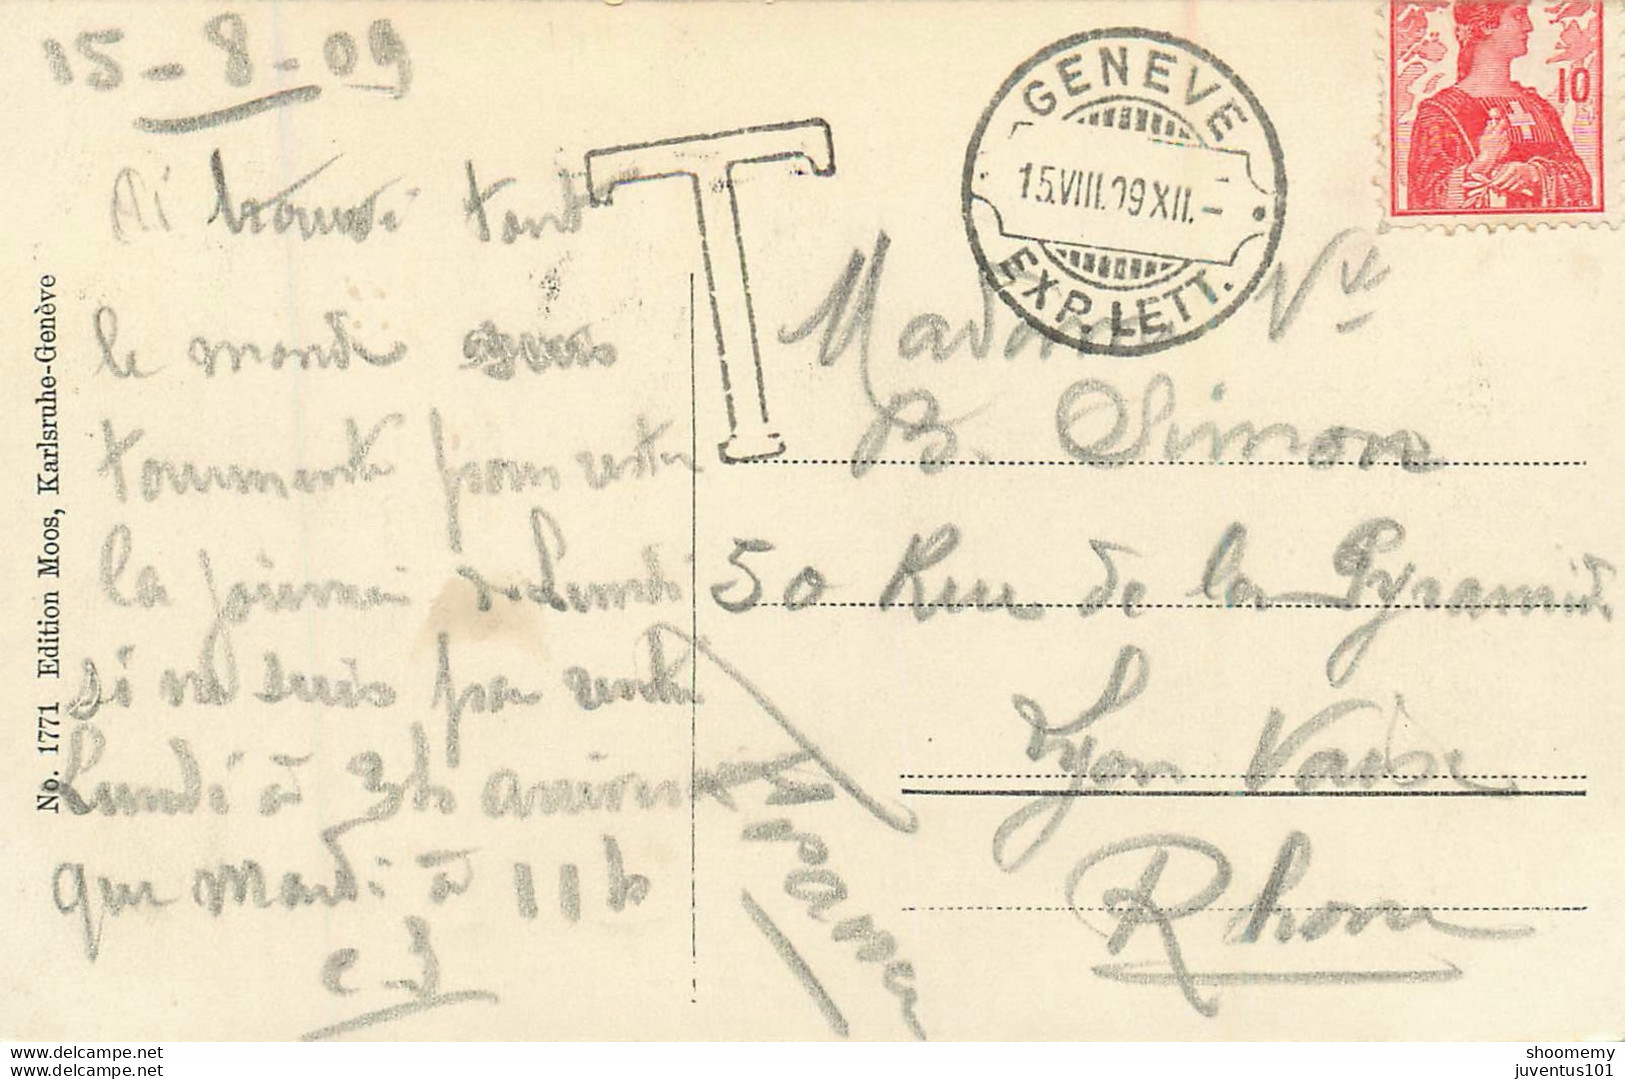 15-8-09
Ai trouvé tout
le monde suis
tourmenté pour rester
la journée de Lundi
si ne suis pas rentré
Lundi à 3h arriverai
que mardi à 11h
T
GENEVE
15.VIII.09 XII.-
EXP. LETT.
10
Madame Vve
B. Simon
50 Rue de la Pyramide
Lyon Vaise
Rhone
France
No. 1771 Edition Moos, Karlsruhe-Genève
delcampe.com
delcampe.com
shoomemy
juventus101